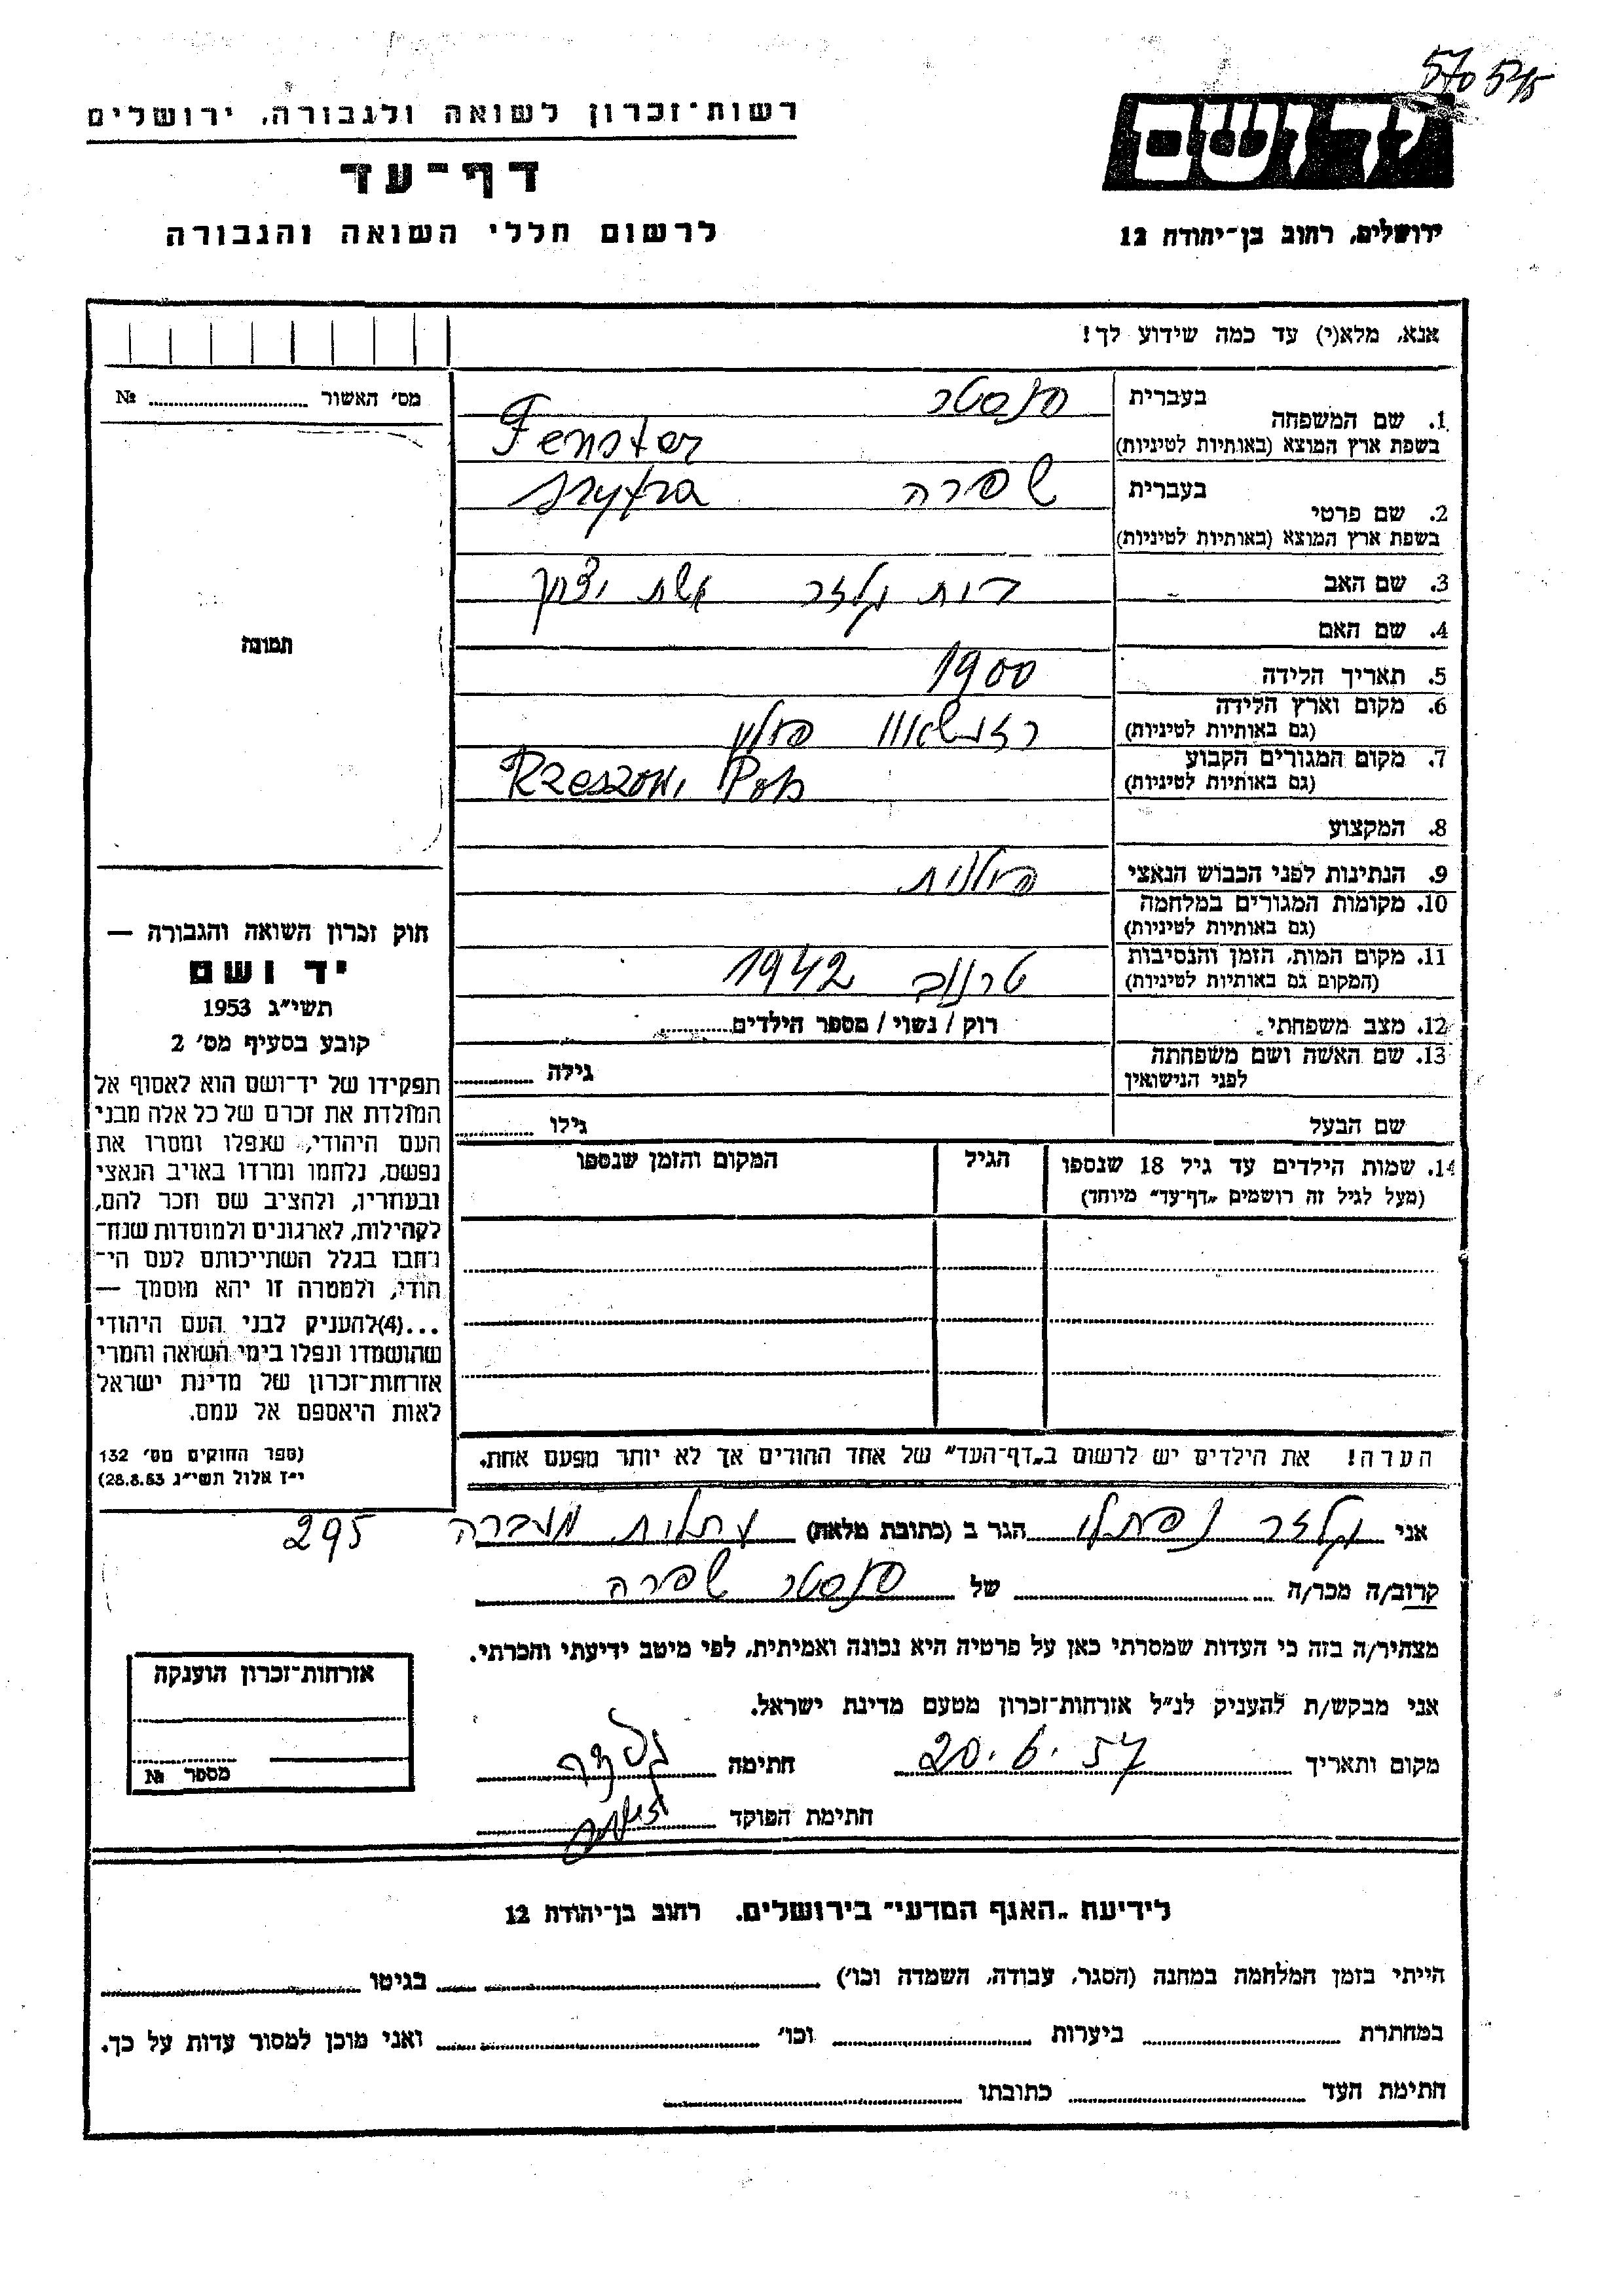 רשות־זכרון לשואה ולגבורה, ירושלים
דף־עד
לרשום חללי השואה והגבורה
ידושם
ירושלים, רחוב בן־יהודה 12
אנא, מלא(י) עד כמה שידוע לך!
מס׳ האשור №
תמונה
1. שם המשפחה
בעברית פנסטר
בשפת ארץ המוצא (באותיות לטיניות) Fenster
2. שם פרטי
בעברית שפרה
בשפת ארץ המוצא (באותיות לטיניות) Szyfra
3. שם האב
בות גלזר אשת יצחק
4. שם האם
5. תאריך הלידה 1900
6. מקום וארץ הלידה
(גם באותיות לטיניות) פולין
7. מקום המגורים הקבוע
(גם באותיות לטיניות) Rzeszow, Pol
8. המקצוע
9. הנתינות לפני הכבוש הנאצי פולנית
10. מקומות המגורים במלחמה
(גם באותיות לטיניות)
11. מקום המות, הזמן והנסיבות טרנוב 1942
(המקום גם באותיות לטיניות)
12. מצב משפחתי רוק / נשוי / מספר הילדים
13. שם האשה ושם משפחתה גילה
לפני הנישואין
שם הבעל גילו
14. שמות הילדים עד גיל 18 שנספו הגיל המקום והזמן שנספו
(מעל לגיל זה רושמים „דף־עד״ מיוחד)
הערה! את הילדים יש לרשום ב„דף־העד״ של אחד ההורים אך לא יותר מפעם אחת.
חוק זכרון השואה והגבורה —
יד ושם
תשי״ג 1953
קובע בסעיף מס׳ 2
תפקידו של יד־ושם הוא לאסוף אל
המולדת את זכרם של כל אלה מבני
העם היהודי, שנפלו ומסרו את
נפשם, נלחמו ומרדו באויב הנאצי
ובעוזריו, ולהציב שם וזכר להם,
לקהילות, לארגונים ולמוסדות שנח־
רבו בגלל השתייכותם לעם הי־
הודי, ולמטרה זו יהא מוסמך —
...(4)להעניק לבני העם היהודי
שהושמדו ונפלו בימי השואה והמרי
אזרחות־זכרון של מדינת ישראל
לאות היאספם אל עמם.
(ספר החוקים מס׳ 132
י״ז אלול תשי״ג 28.8.53)
אני גלזר נפתלי הגר ב (כתובת מלאה) עתלית מעברה 295
קרוב/ה מכר/ה של פנסטר שפרה
מצהיר/ה בזה כי העדות שמסרתי כאן על פרטיה היא נכונה ואמיתית, לפי מיטב ידיעתי והכרתי.
אני מבקש/ת להעניק לנ״ל אזרחות־זכרון מטעם מדינת ישראל.
מקום ותאריך 20.6.57 חתימה
חתימת הפוקד
אזרחות־זכרון הוענקה
מספר №
לידיעת „האגף המדעי״ בירושלים. רחוב בן־יהודה 12
הייתי בזמן המלחמה במחנה (הסגר, עבודה, השמדה וכו׳) בגיטו
במחתרת ביערות וכו׳ ואני מוכן למסור עדות על כך.
חתימת העד כתובתו